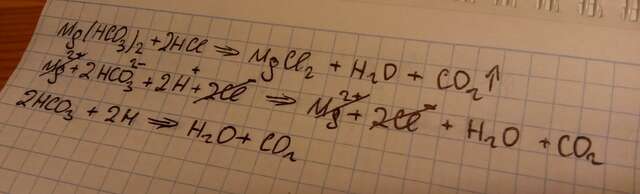 Mg(HCO₃)₂ + 2HCl ⇒ MgCl₂ + H₂O + CO₂↑
Mg²⁺ + 2HCO₃²⁻ + 2H⁺ + 2Cl⁻ ⇒ Mg²⁺ + 2Cl⁻ + H₂O + CO₂
2HCO₃ + 2H ⇒ H₂O + CO₂